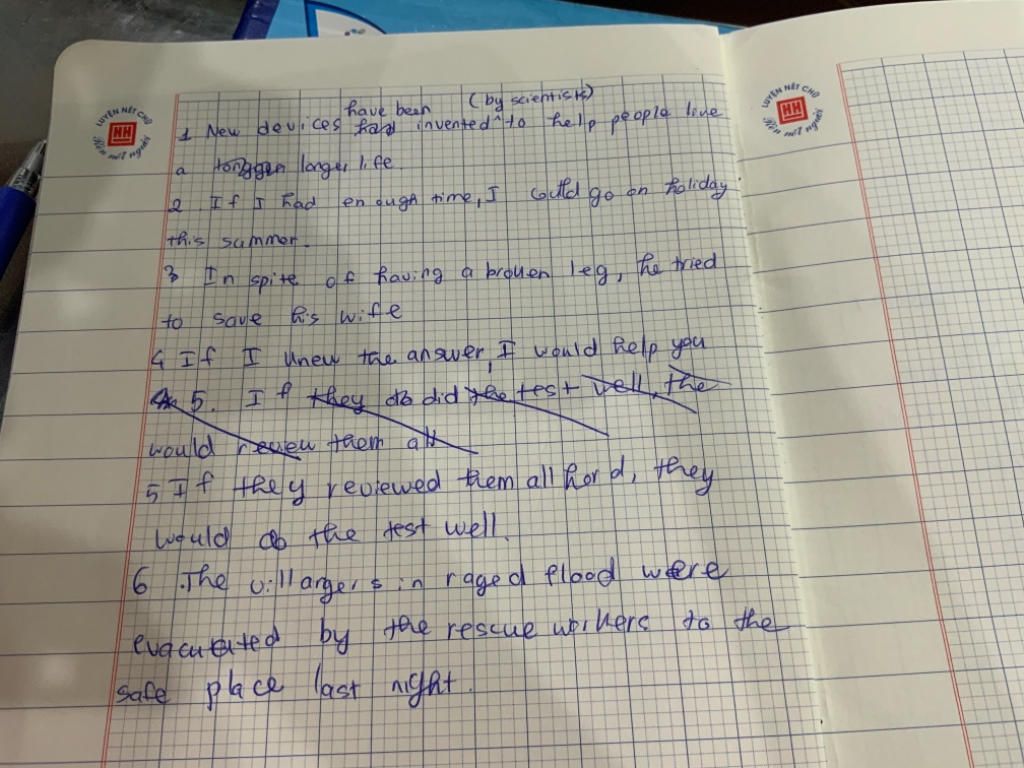 LUYỆN NÉT CHỮ
HH
Rèn nết người
LUYỆN NÉT CHỮ
HH
Rèn nết người
have been (by scientists)
1 New devices had invented^ to help people live
a longger larger life.
2 If I had enough time, I could go on holiday
this summer.
3 In spite of having a broken leg, he tried
to save his wife
4 If I knew the answer, I would help you
5. If they do did the test well, the
would review them all
5 If they reviewed them all hord, they
would do the test well.
6 .The villargers in raged flood were
evacuated by the rescue workers to the
safe place last night.